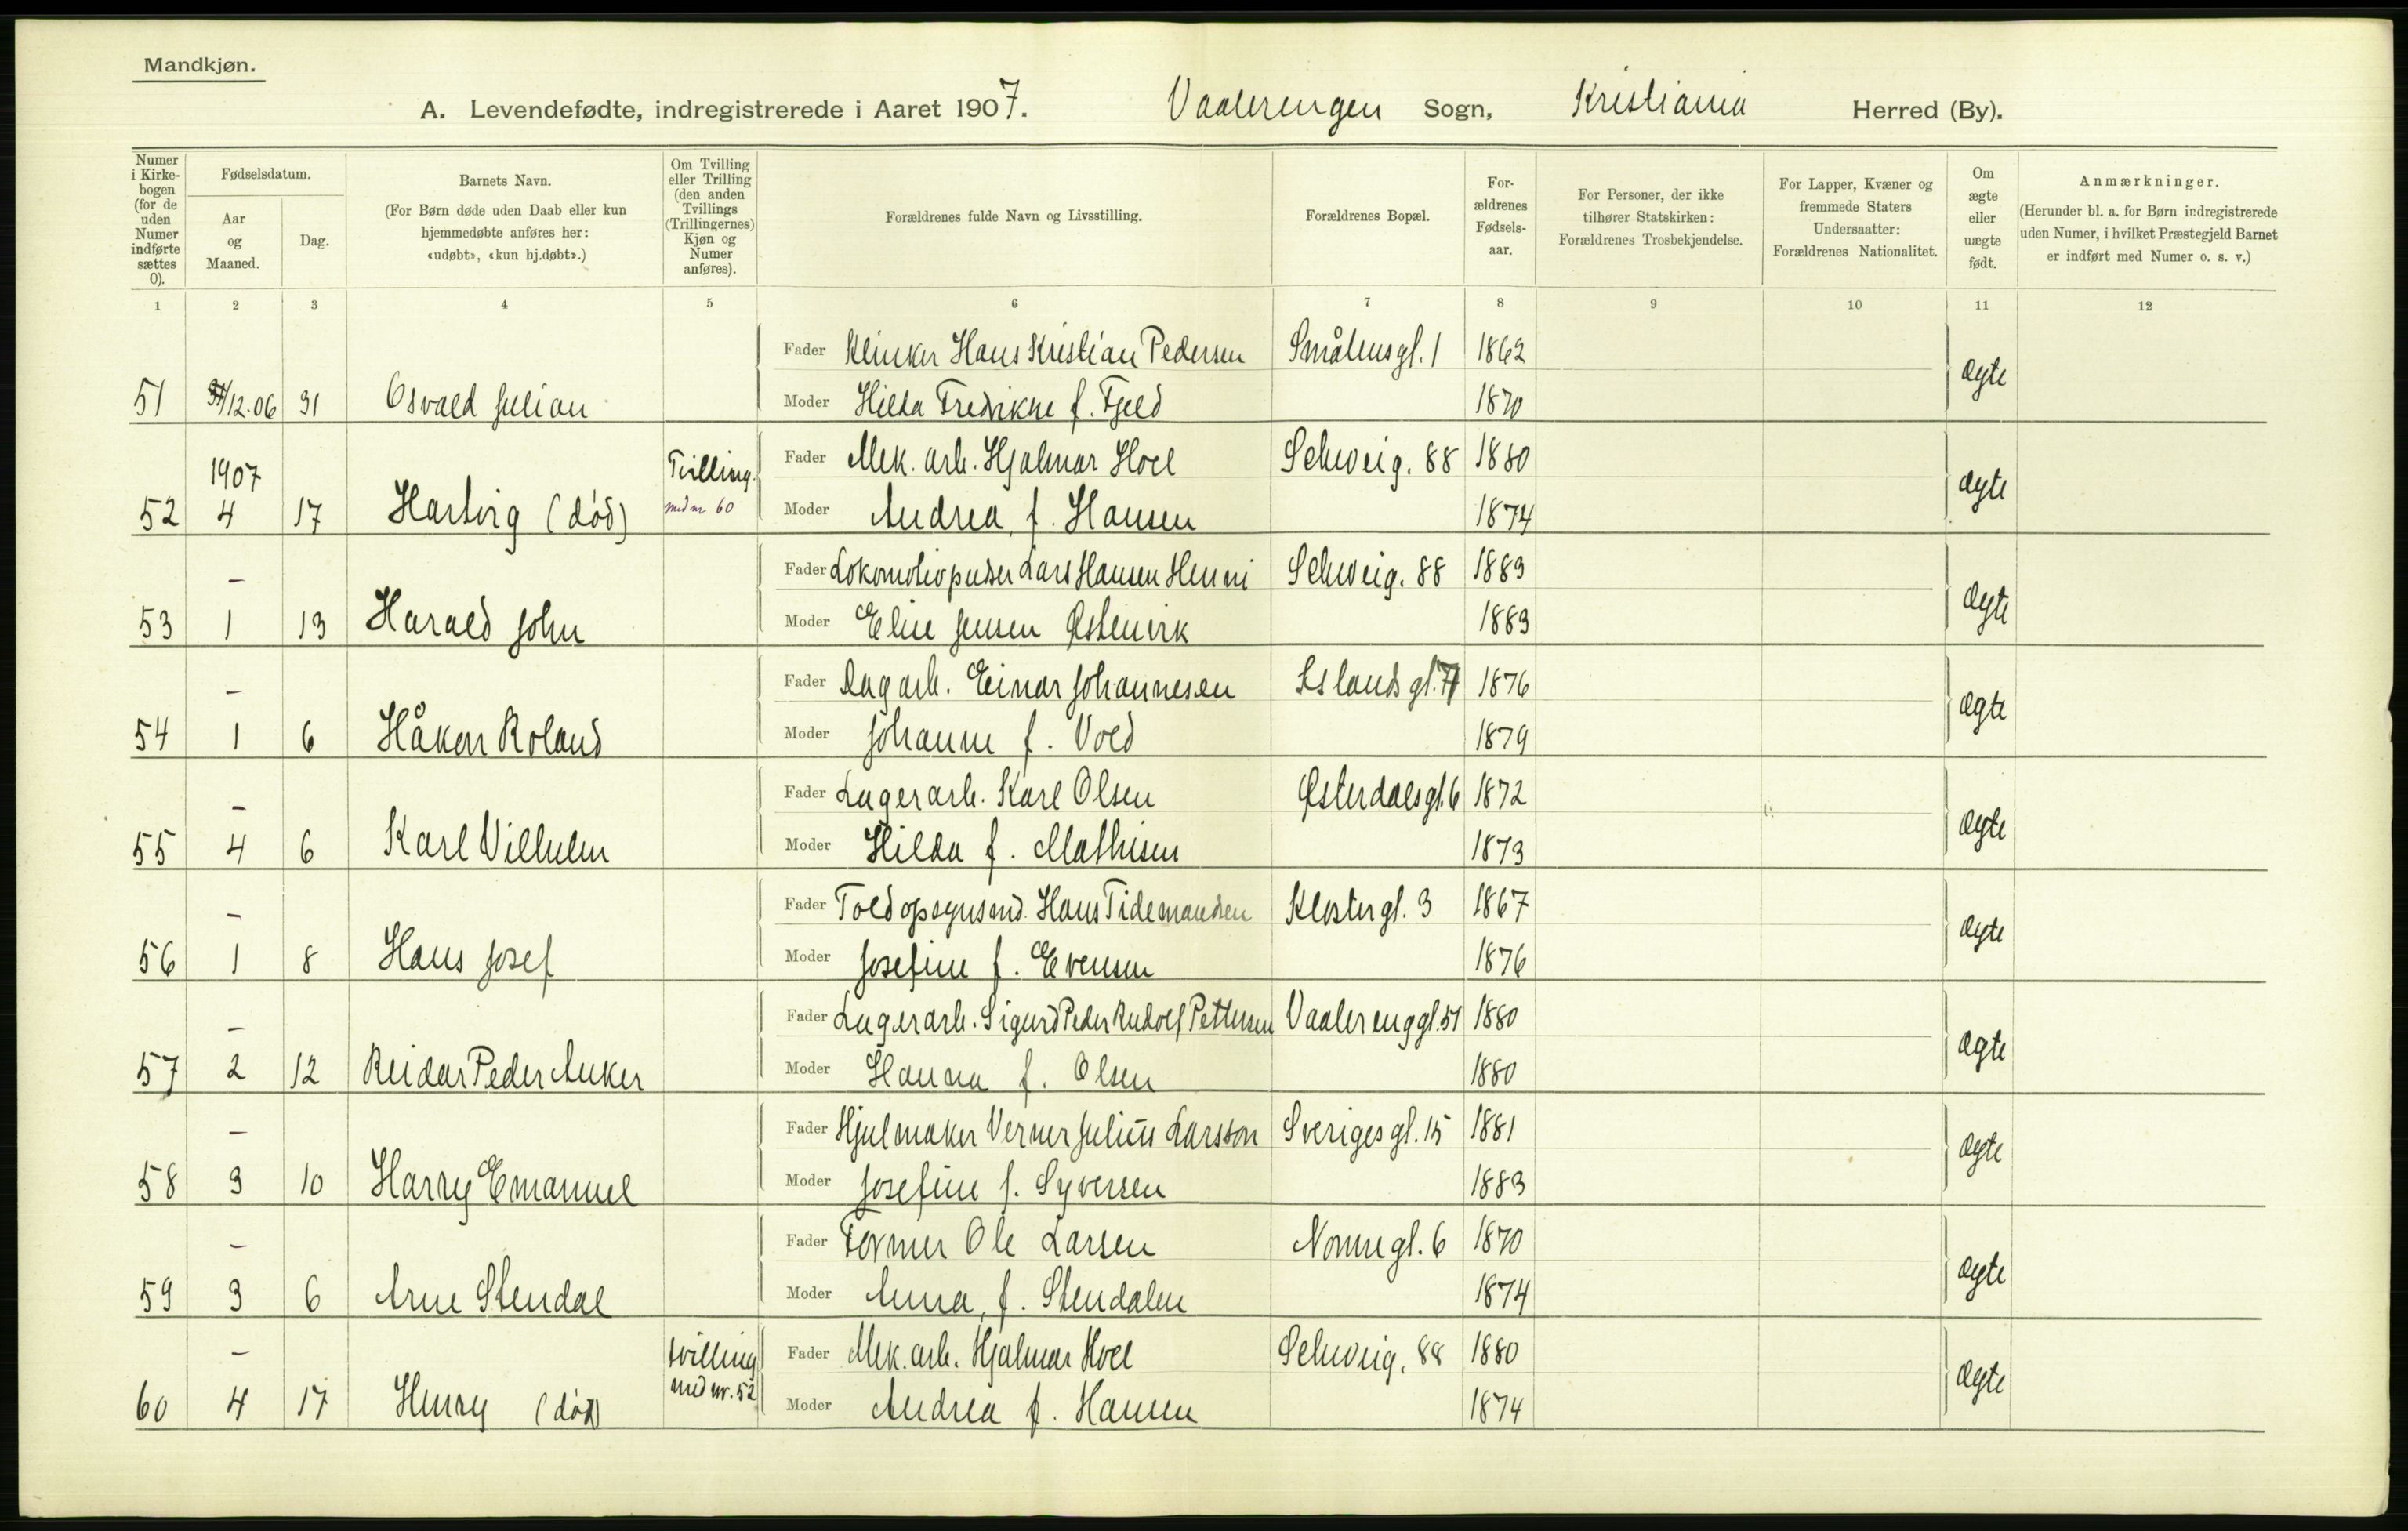 Mandkjøn.
A. Levendefødte, indregistrerede i Aaret 1907. Vaalerengen Sogn, Kristiania Herred (By).
Numer i Kirkebogen (for de uden Numer indførte sættes 0).
Fødselsdatum.
Aar og Maaned.
Dag.
Barnets Navn.
(For Børn døde uden Daab eller kun hjemmedøbte anføres her: «udøbt», «kun hj.døbt».)
Om Tvilling eller Trilling (den anden Tvillings (Trillingernes) Kjøn og Numer anføres).
Forældrenes fulde Navn og Livsstilling.
Forældrenes Bopæl.
Forældrenes Fødselsaar.
For Personer, der ikke tilhører Statskirken: Forældrenes Trosbekjendelse.
For Lapper, Kvæner og fremmede Staters Undersaatter: Forældrenes Nationalitet.
Om ægte eller uægte født.
Anmærkninger.
(Herunder bl. a. for Børn indregistrerede uden Numer, i hvilket Præstegjeld Barnet er indført med Numer o. s. v.)
1 2 3 4 5 6 7 8 9 10 11 12
Fader Klinker Hans Kristian Pedersen Smålensgt. 1 1862
51 /12.06 31 Osvald Julian Moder Hilda Fredrikke f. Fjeld 1870 ægte
1907 Tvilling Fader Mek. arb. Hjalmar Hoel Schweig. 88 1880
52 4 17 Hartvig (død) med nr 60 Moder Andrea, f. Hansen 1874 ægte
– Fader Lokomotivpudser Lars Hansen Henni Schweig. 88 1883
53 1 13 Harald John Moder Eline Jensen Østenvik 1883 ægte
– Fader Dagarb. Einar Johannesen Islandsgt. 1876
54 1 6 Håkon Roland Moder Johanne f. Vold 1879 ægte
– Fader Lagerarb. Karl Olsen Østerdalsgt. 6 1872
55 4 6 Karl Vilhelm Moder Hilda f. Mathisen 1873 ægte
– Fader Toldopsynsmd. Hans Tidemandsen Klostergt. 3 1867
56 1 8 Hans Josef Moder Josefine f. Evensen 1876 ægte
– Fader Lagerarb. Sigurd Peder Rudolf Pettersen Vaalerenggt. 51 1880
57 2 12 Reidar Peder Anker Moder Hanna f. Olsen 1880 ægte
– Fader Hjulmaker Verner Julius Larsson Sverigesgt. 15 1881
58 3 10 Harry Emanuel Moder Josefine f. Syversen 1883 ægte
– Fader Former Ole Larsen Nonnegt. 6 1870
59 3 6 Arne Stendal Moder Anna, f. Stendalen 1874 ægte
– tvilling Fader Mek. arb. Hjalmar Hoel Schweig. 88 1880
60 4 17 Henry (død) med nr. 52 Moder Andrea f. Hansen 1874 ægte